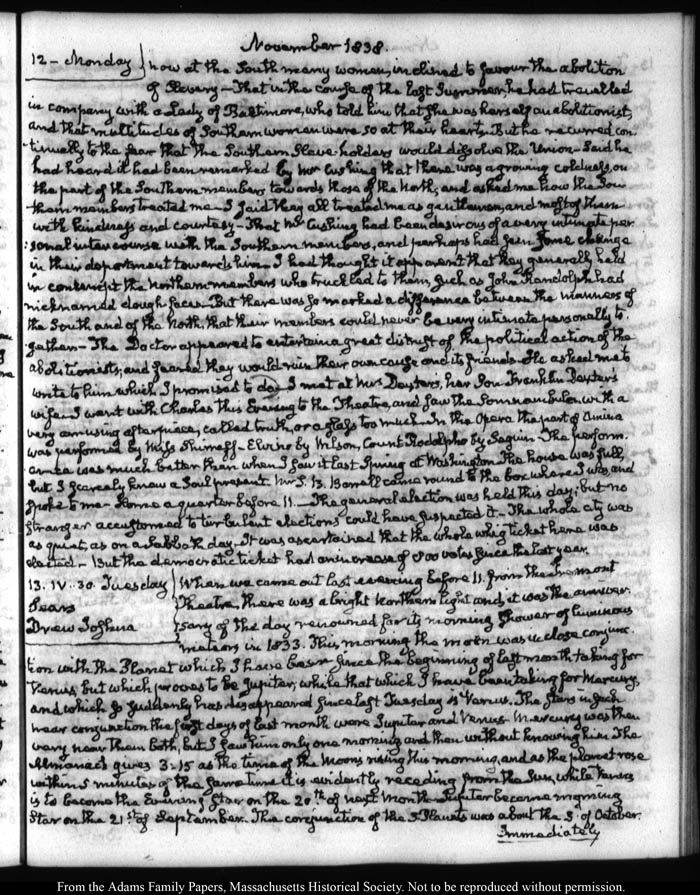 November 1838.
12 - Monday} now at the South many women, inclined to favour the abolition
of Slavery - That in the course of the last Summer, he had travelled
in company with a Lady of Baltimore, who told him that She was herself an abolitionist,
and that multitudes of Southern women were so at their hearts. But he recurred con-
tinually to the fear that the Southern Slave-holders would dissolve the Union - Said he
had heard it had been remarked by Mr Cushing that there was a growing coldness, on
the part of the Southern members towards those of the North, and asked me how the Sou-
thern members treated me - I said they all treated me as gentlemen, and most of them
with kindness and courtesy - That Mr Cushing had been desirous of a very intimate per-
:sonal intercourse with the Southern members, and perhaps had seen some change
in their deportment towards him. I had thought it apparent that they generally held
in contempt the Northern members who truckled to them, such as John Randolph had
nicknamed dough faces. But there was so marked a difference between the manners of
the South and of the North, that their members could never be very intimate personally to-
gether - The Doctor appeared to entertain a great distrust of the political action of the
abolitionists, and feared they would ruin their own cause and its friends. He asked me to
write to him which I promised to do. I met at Mrs Dexter's, her Son Franklin Dexter's
wife. I went with Charles this Evening to the Theatre, and saw the Somnambulist, with a
very amusing afterpiece, called truth, or a glass too much. In the Opera the part of Amina
was performed by Miss Shirreff - Elvino by Wilson, Count Rodolpho by Seguin - The perform-
ance was much better than when I saw it last Spring at Washington. The house was full,
but I scarcely knew a Soul present. Mr S. B. came round to the box where I was, and
spoke to me - Home a quarter before 11. - The general election was held this day; but no
Stranger accustomed to turbulent elections could have suspected it - The whole city was
as quiet, as on a Sabbath day. It was ascertained that the whole whig ticket here was
elected - But the democratic ticket had an increase of 800 votes since the last year.
13. IV. 30. Tuesday} When we came out last evening before 11. from the Tremont
Sears Theatre, there was a bright Northern light and it was the anniver-
Drew Joshua }sary of the day renowned for its morning Shower of luminous
meteors in 1833. This morning the moon was in close conjunc-
tion with the Planet which I have been since the beginning of last month taking for
Venus, but which proves to be Jupiter, while that which I have been taking for Mercury,
and which so suddenly has disappeared since last Tuesday is Venus. The stars in such
near conjunction the first days of last month were Jupiter and Venus. Mercury was then
very near them both, but I saw him only one morning and then without knowing him. The
Almanac gives 3:15 as the time of the Moons rising this morning, and as the planet rose
within 5 minutes of the same time it is evidently receding from the Sun, while Venus
is to become the Evening Star on the 20th of next month. Jupiter became morning
Star on the 21st of September. The conjunction of the 3 Planets was about the 3d of October.
Immediately
From the Adams Family Papers, Massachusetts Historical Society. Not to be reproduced without permission.